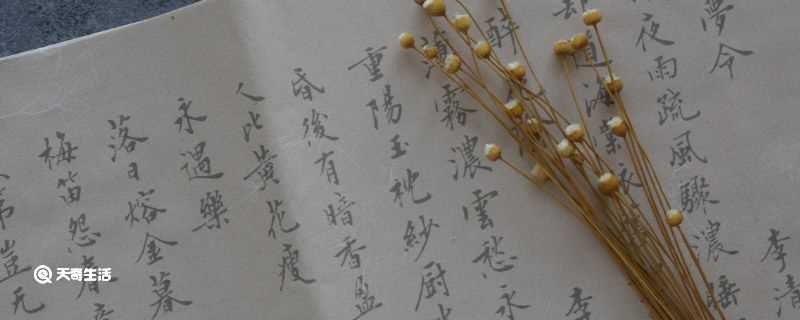 夢令 李清
夜雨疏風驟濃睡
道海棠依
醉 李
薄霧濃雲愁永
重陽玉枕紗厨
昏後有暗香盈
人比黃花瘦
永遇樂
落日熔金暮
梅笛怨春
豈无
天奇生活